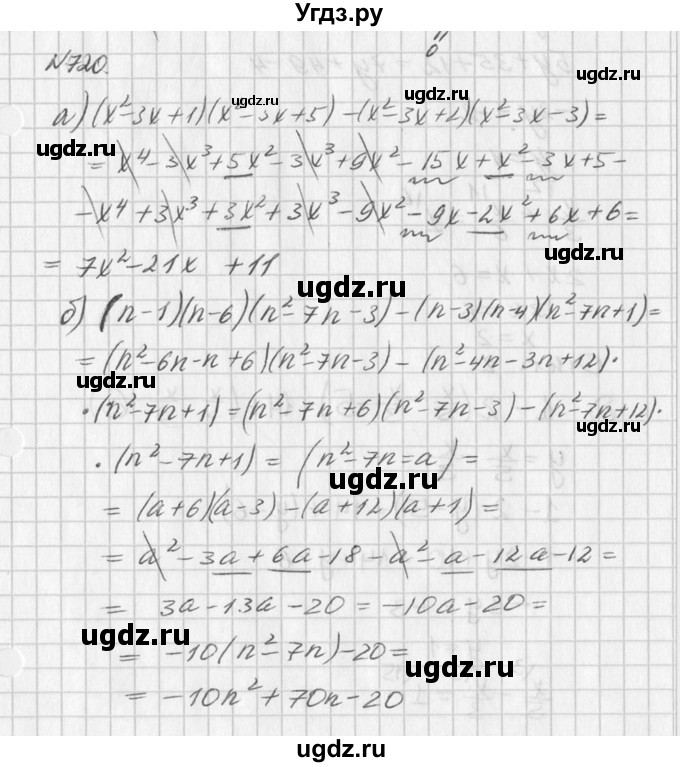 Угдз.ру
N720.
а) (x²-3x+1)(x²-3x+5)-(x²-3x+2)(x²-3x-3)=
= x⁴-3x³+5x²-3x³+9x²-15x+x²-3x+5-
-x⁴+3x³+3x²+3x³-9x²-9x-2x²+6x+6=
= 7x²-21x +11
б) (n-1)(n-6)(n²-7n-3)-(n-3)(n-4)(n²-7n+1)=
=(n²-6n-n+6)(n²-7n-3)-(n²-4n-3n+12)·
·(n²-7n+1)=(n²-7n+6)(n²-7n-3)-(n²-7n+12)·
·(n²-7n+1)= (n²-7n=a) =
= (a+6)(a-3)-(a+12)(a+1)=
= a²-3a+6a-18-a²-a-12a-12=
= 3a-13a-20=-10a-20=
= -10(n²-7n)-20=
= -10n²+70n-20
ugdz.ru
ugdz.ru
ugdz.ru
ugdz.ru
ugdz.ru
ugdz.ru
ugdz.ru
ugdz.ru
ugdz.ru
ugdz.ru
ugdz.ru
ugdz.ru
ugdz.ru